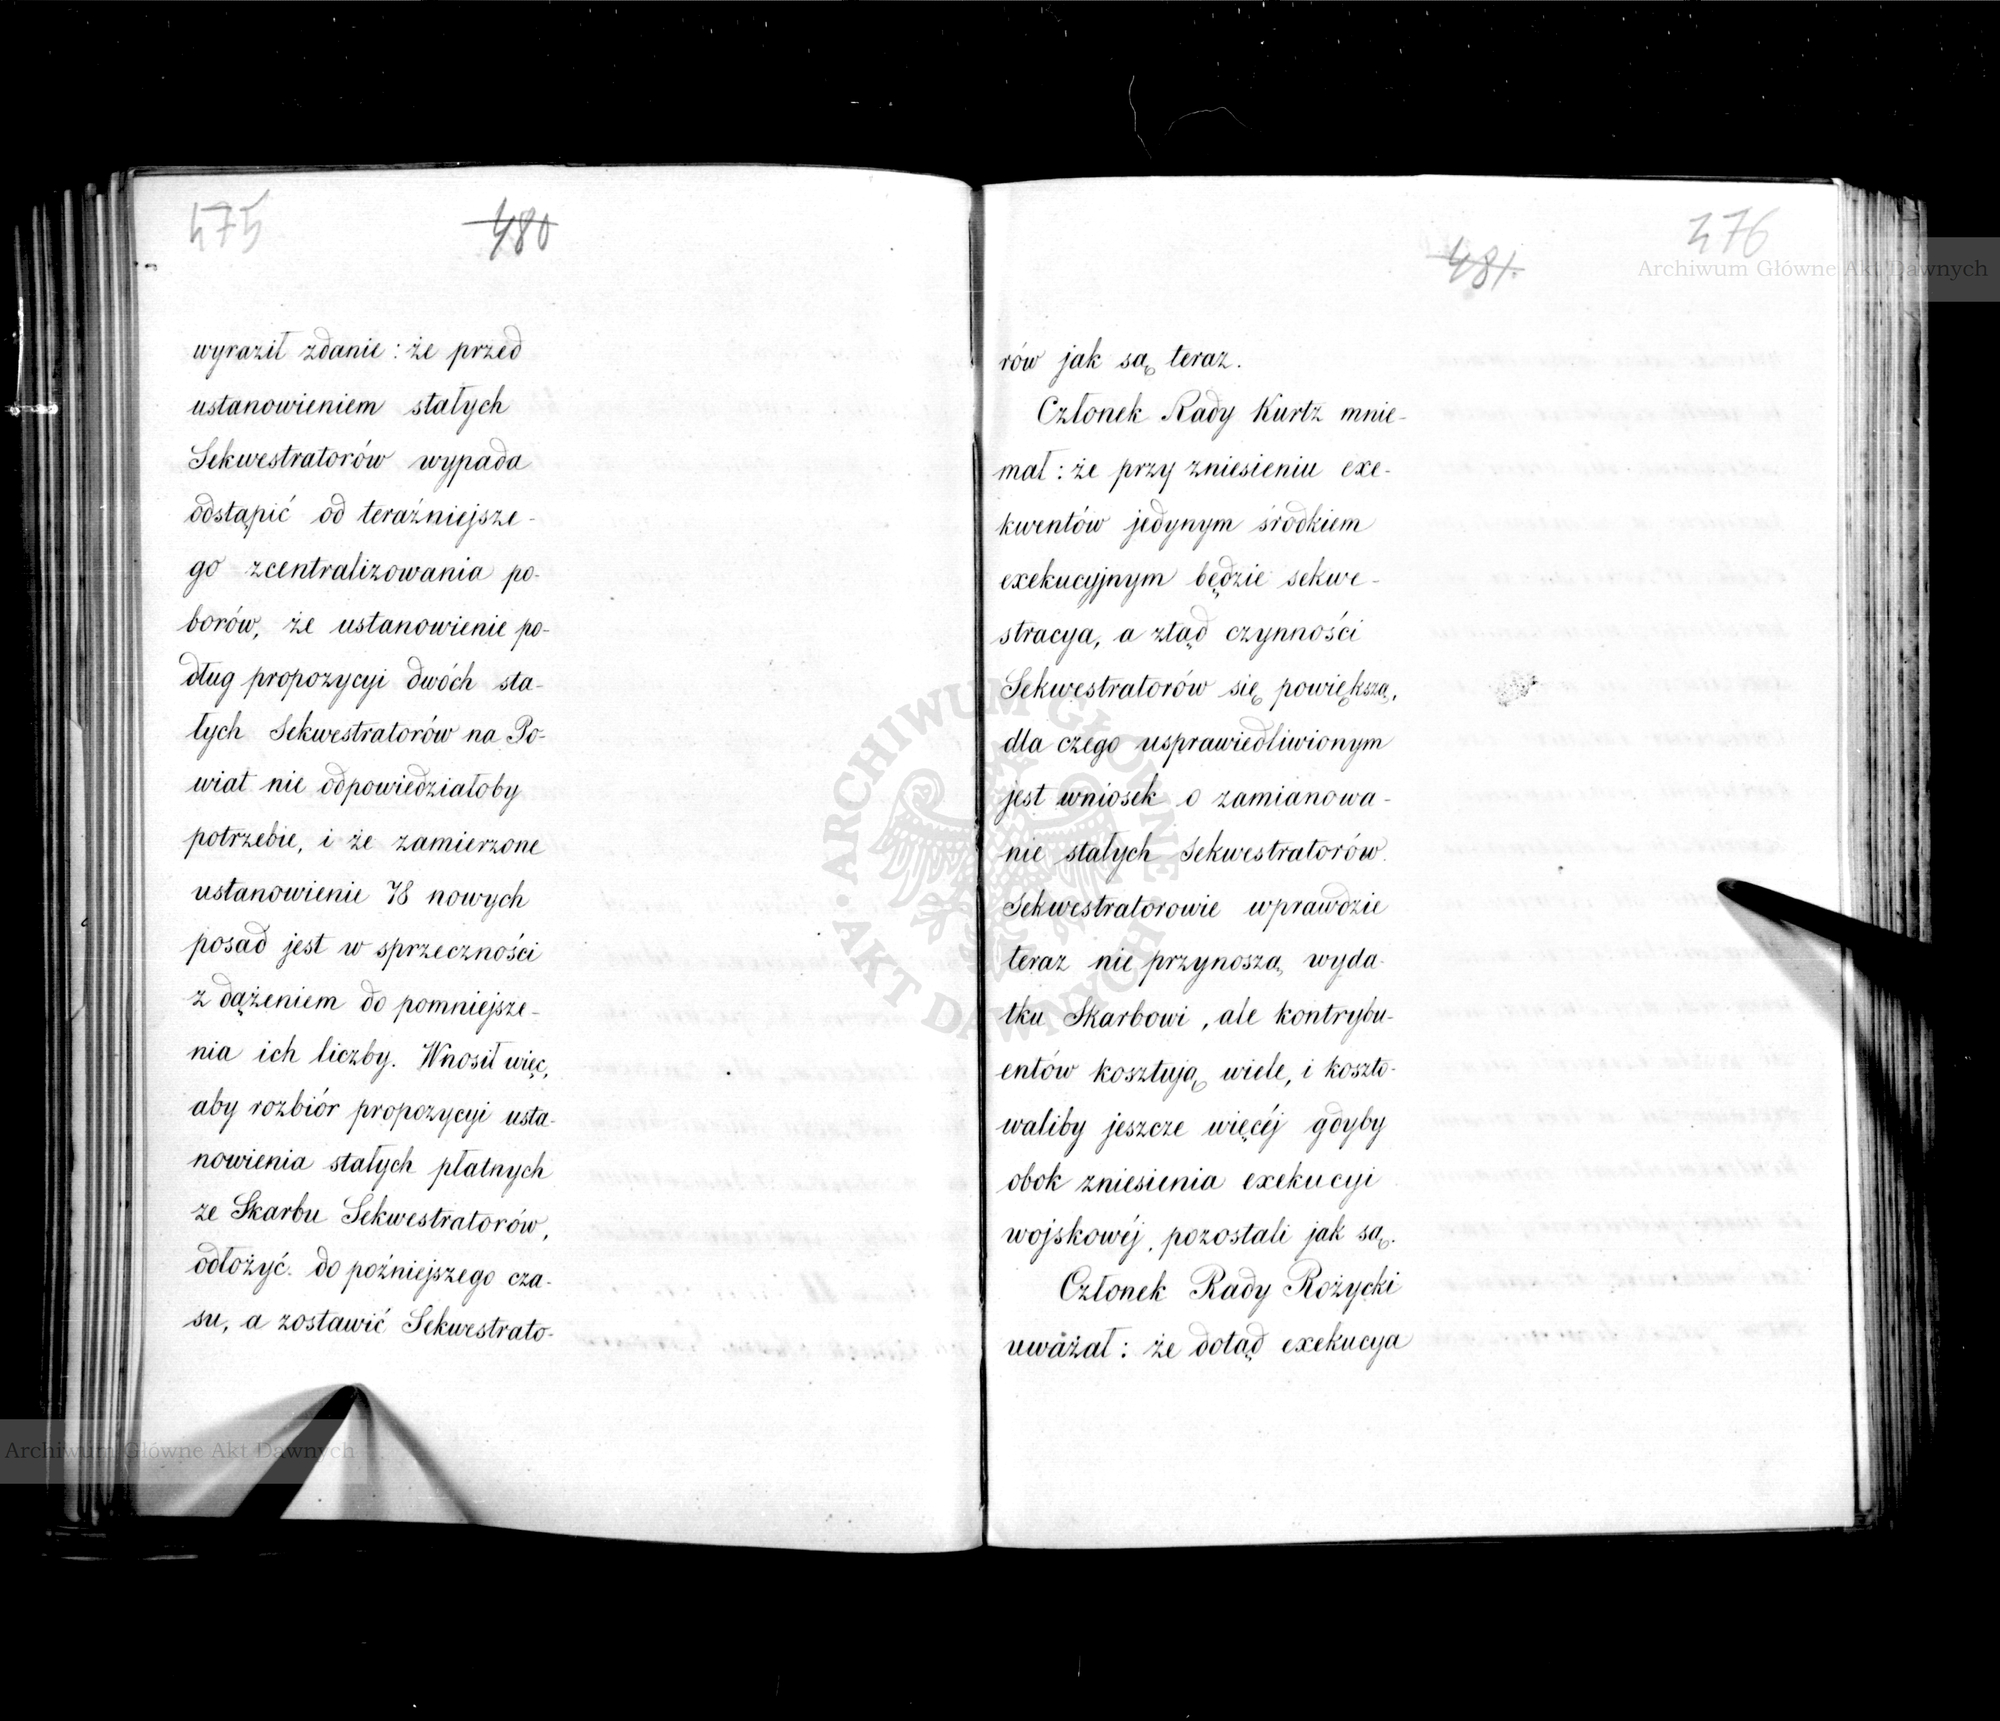 475
480
wyraził zdanie: że przed
ustanowieniem stałych
Sekwestratorów wypada
odstąpić od teraźniejsze-
go zcentralizowania po-
borów, że ustanowienie po-
dług propozycyi dwóch sta-
łych Sekwestratorów na Po-
wiat nie odpowiedziałoby
potrzebie, i że zamierzone
ustanowienie 78 nowych
posad jest w sprzeczności
z dążeniem do pomniejsze-
nia ich liczby. Wnosił więc,
aby rozbiór propozycyi usta-
nowienia stałych płatnych
ze Skarbu Sekwestratorów,
odłożyć do poźniejszego cza-
su, a zostawić Sekwestrato-
476
481.
rów jak są teraz.
Członek Rady Kurtz mnie-
mał: że przy zniesieniu exe-
kwentów jedynym środkiem
exekucyjnym będzie sekwe-
stracya, a ztąd czynności
Sekwestratorów się powiększą,
dla czego usprawiedliwionym
jest wniosek o zamianowa-
nie stałych Sekwestratorów.
Sekwestratorowie wprawdzie
teraz nie przynoszą wyda-
tku Skarbowi, ale kontrybu-
entów kosztują wiele, i koszto-
waliby jeszcze więcéj gdyby
obok zniesienia exekucyi
wojskowéj, pozostali jak są.
Członek Rady Rożycki
uważał: że dotąd exekucya
Archiwum Główne Akt Dawnych
ARCHIWUM GŁÓWNE AKT DAWNYCH
Archiwum Główne Akt Dawnych